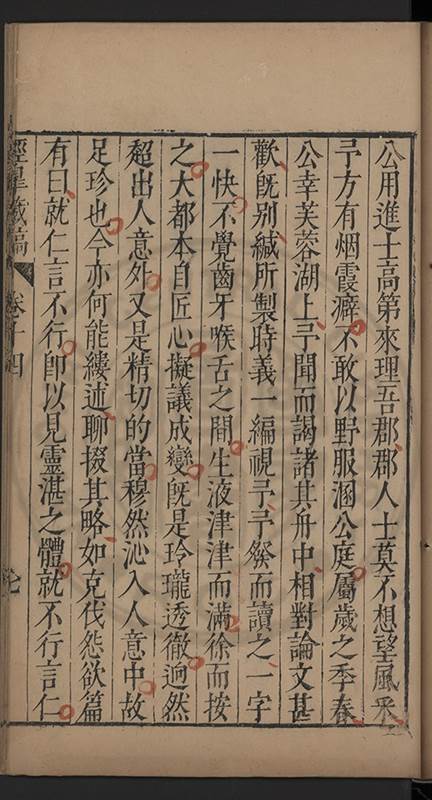 公用進士高第來理吾郡郡人士莫不想望風采
予方有烟霞癖不敢以野服溷公庭屬歲之季春
公幸芙蓉湖上予聞而謁諸其舟中相對論文甚
歡旣别緘所製時義一編視予予發而讀之一字
一快不覺齒牙喉舌之間生液津津而滿徐而按
之大都本自匠心擬議成變旣是玲瓏透徹逈然
超出人意外又是精切的當穆然沁入人意中故
足珍也今亦何能縷述聊掇其略如克伐怨欲篇
有曰就仁言不行卽以見靈湛之體就不行言仁
藏稿
卷十四
七